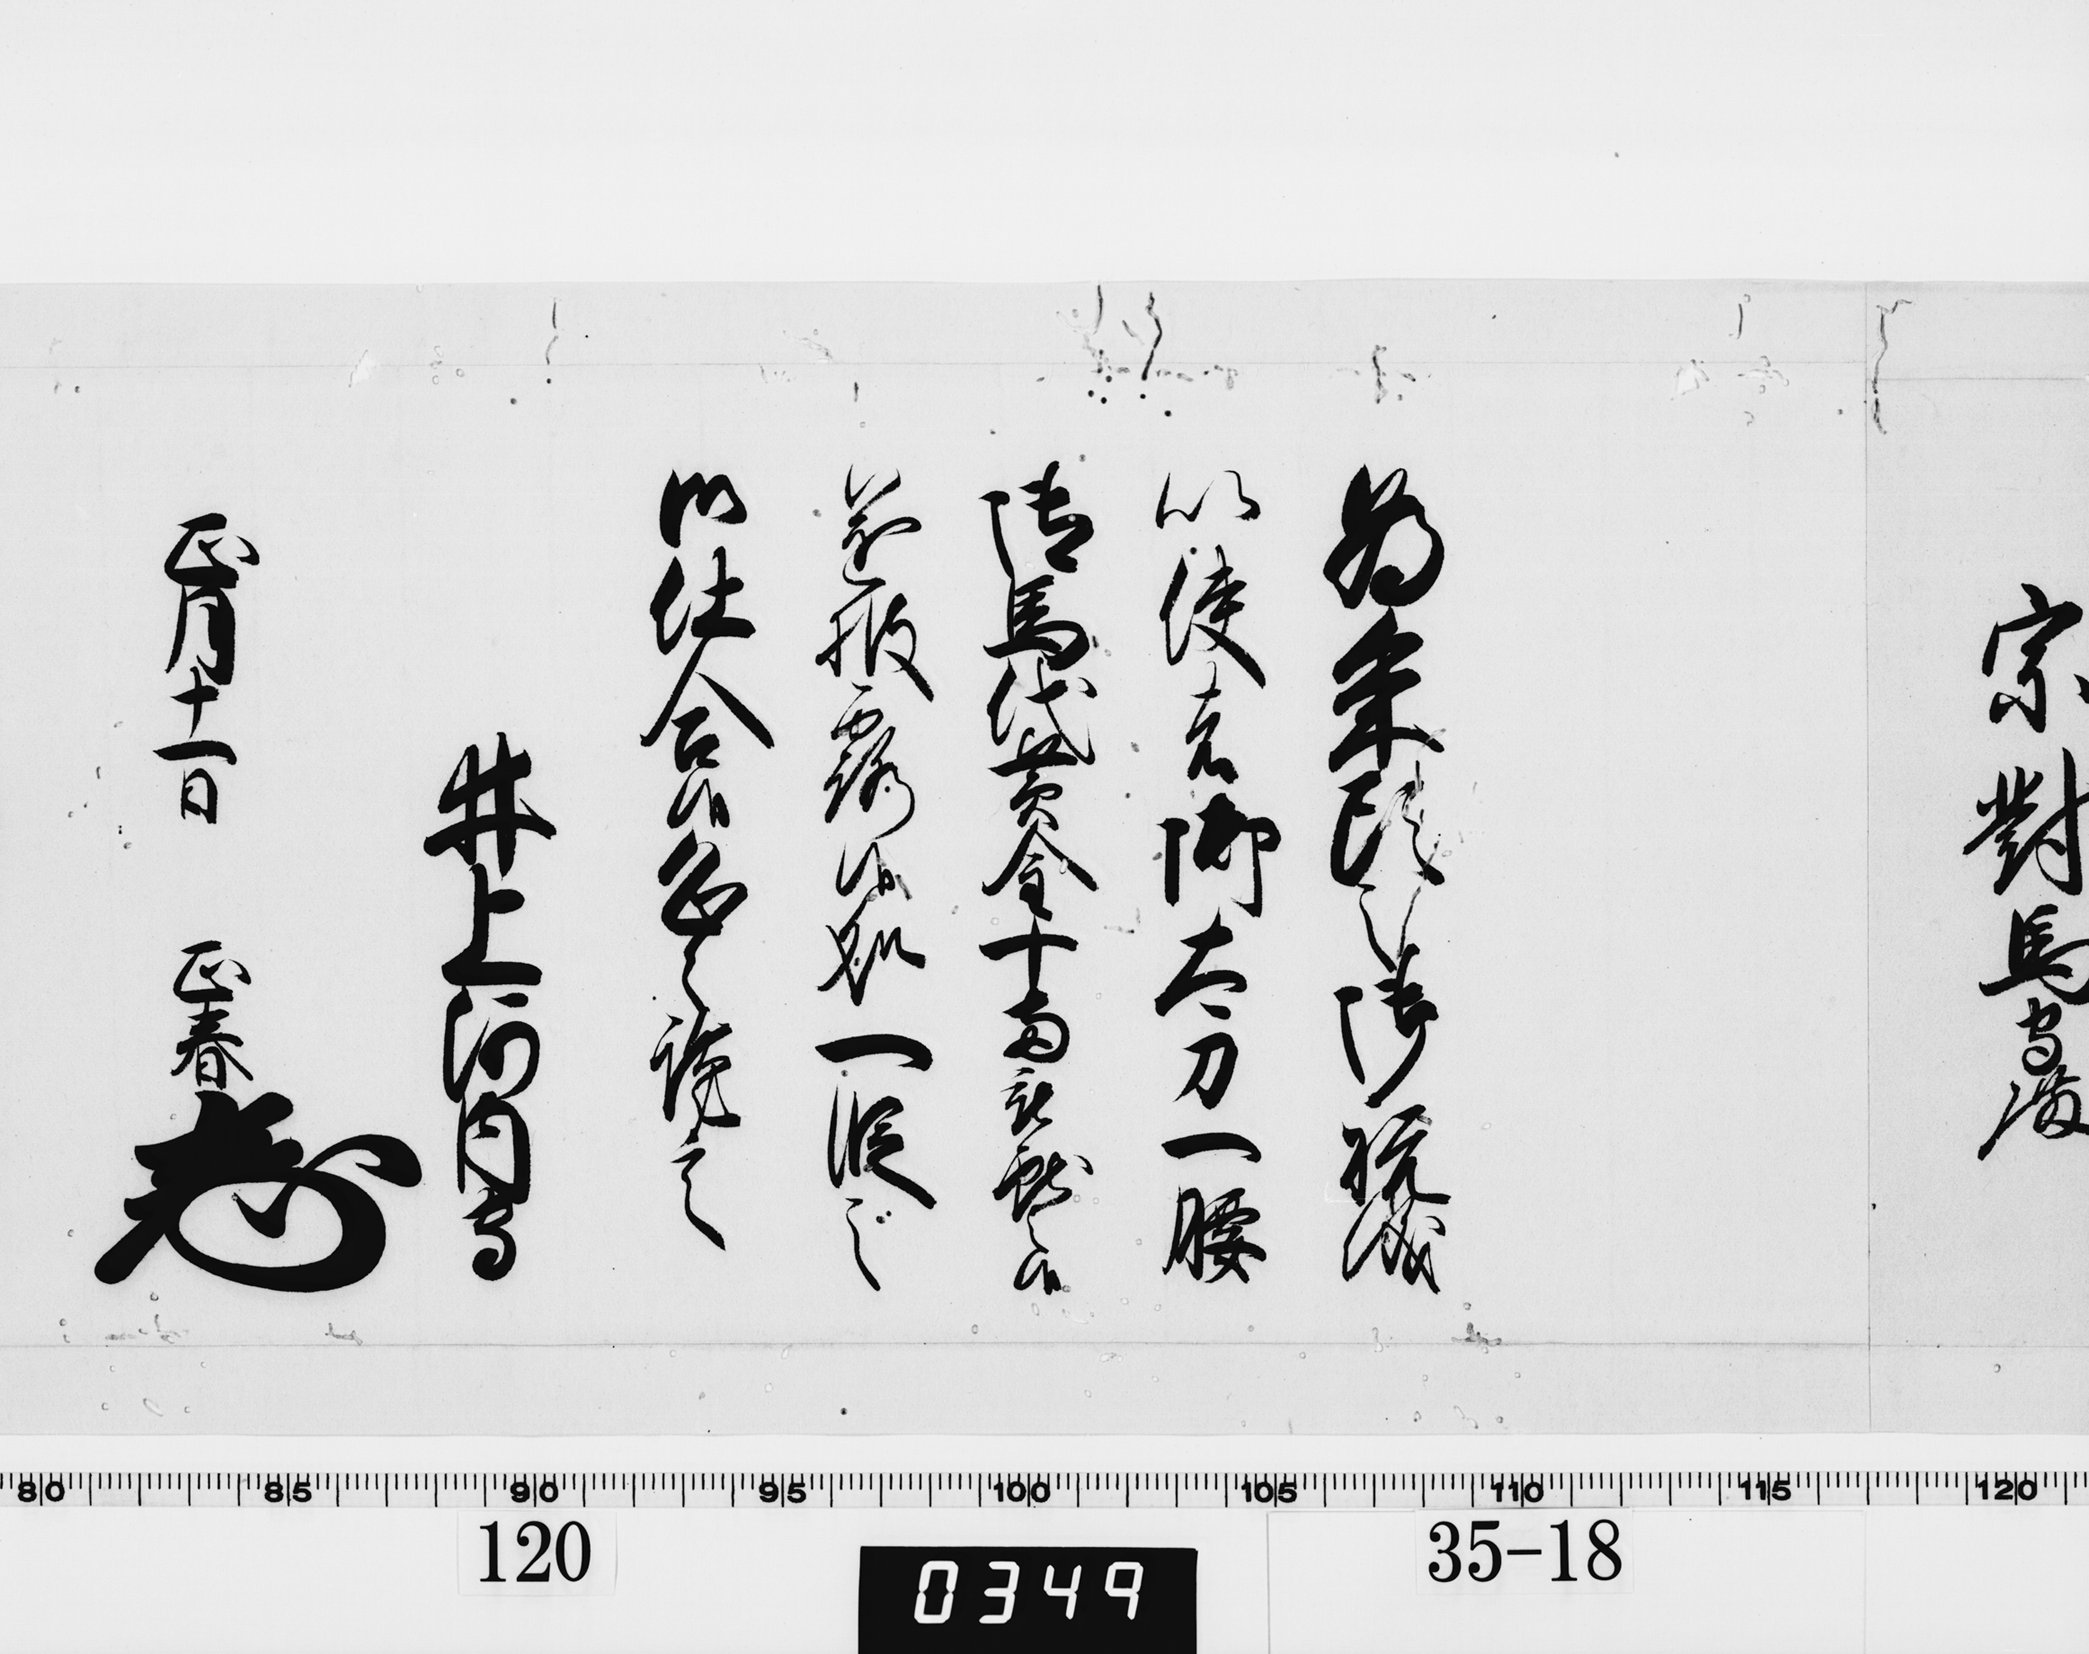 宗對馬守殿
為年頭之御祝儀
以使者御太刀一腰
御馬代黄金十両被献之候
遂披露候処一段之
御仕合候恐々謹言
井上河内守
正月十一日 正春
80 85 90 95 100 105 110 115 120
120
0349
35-18